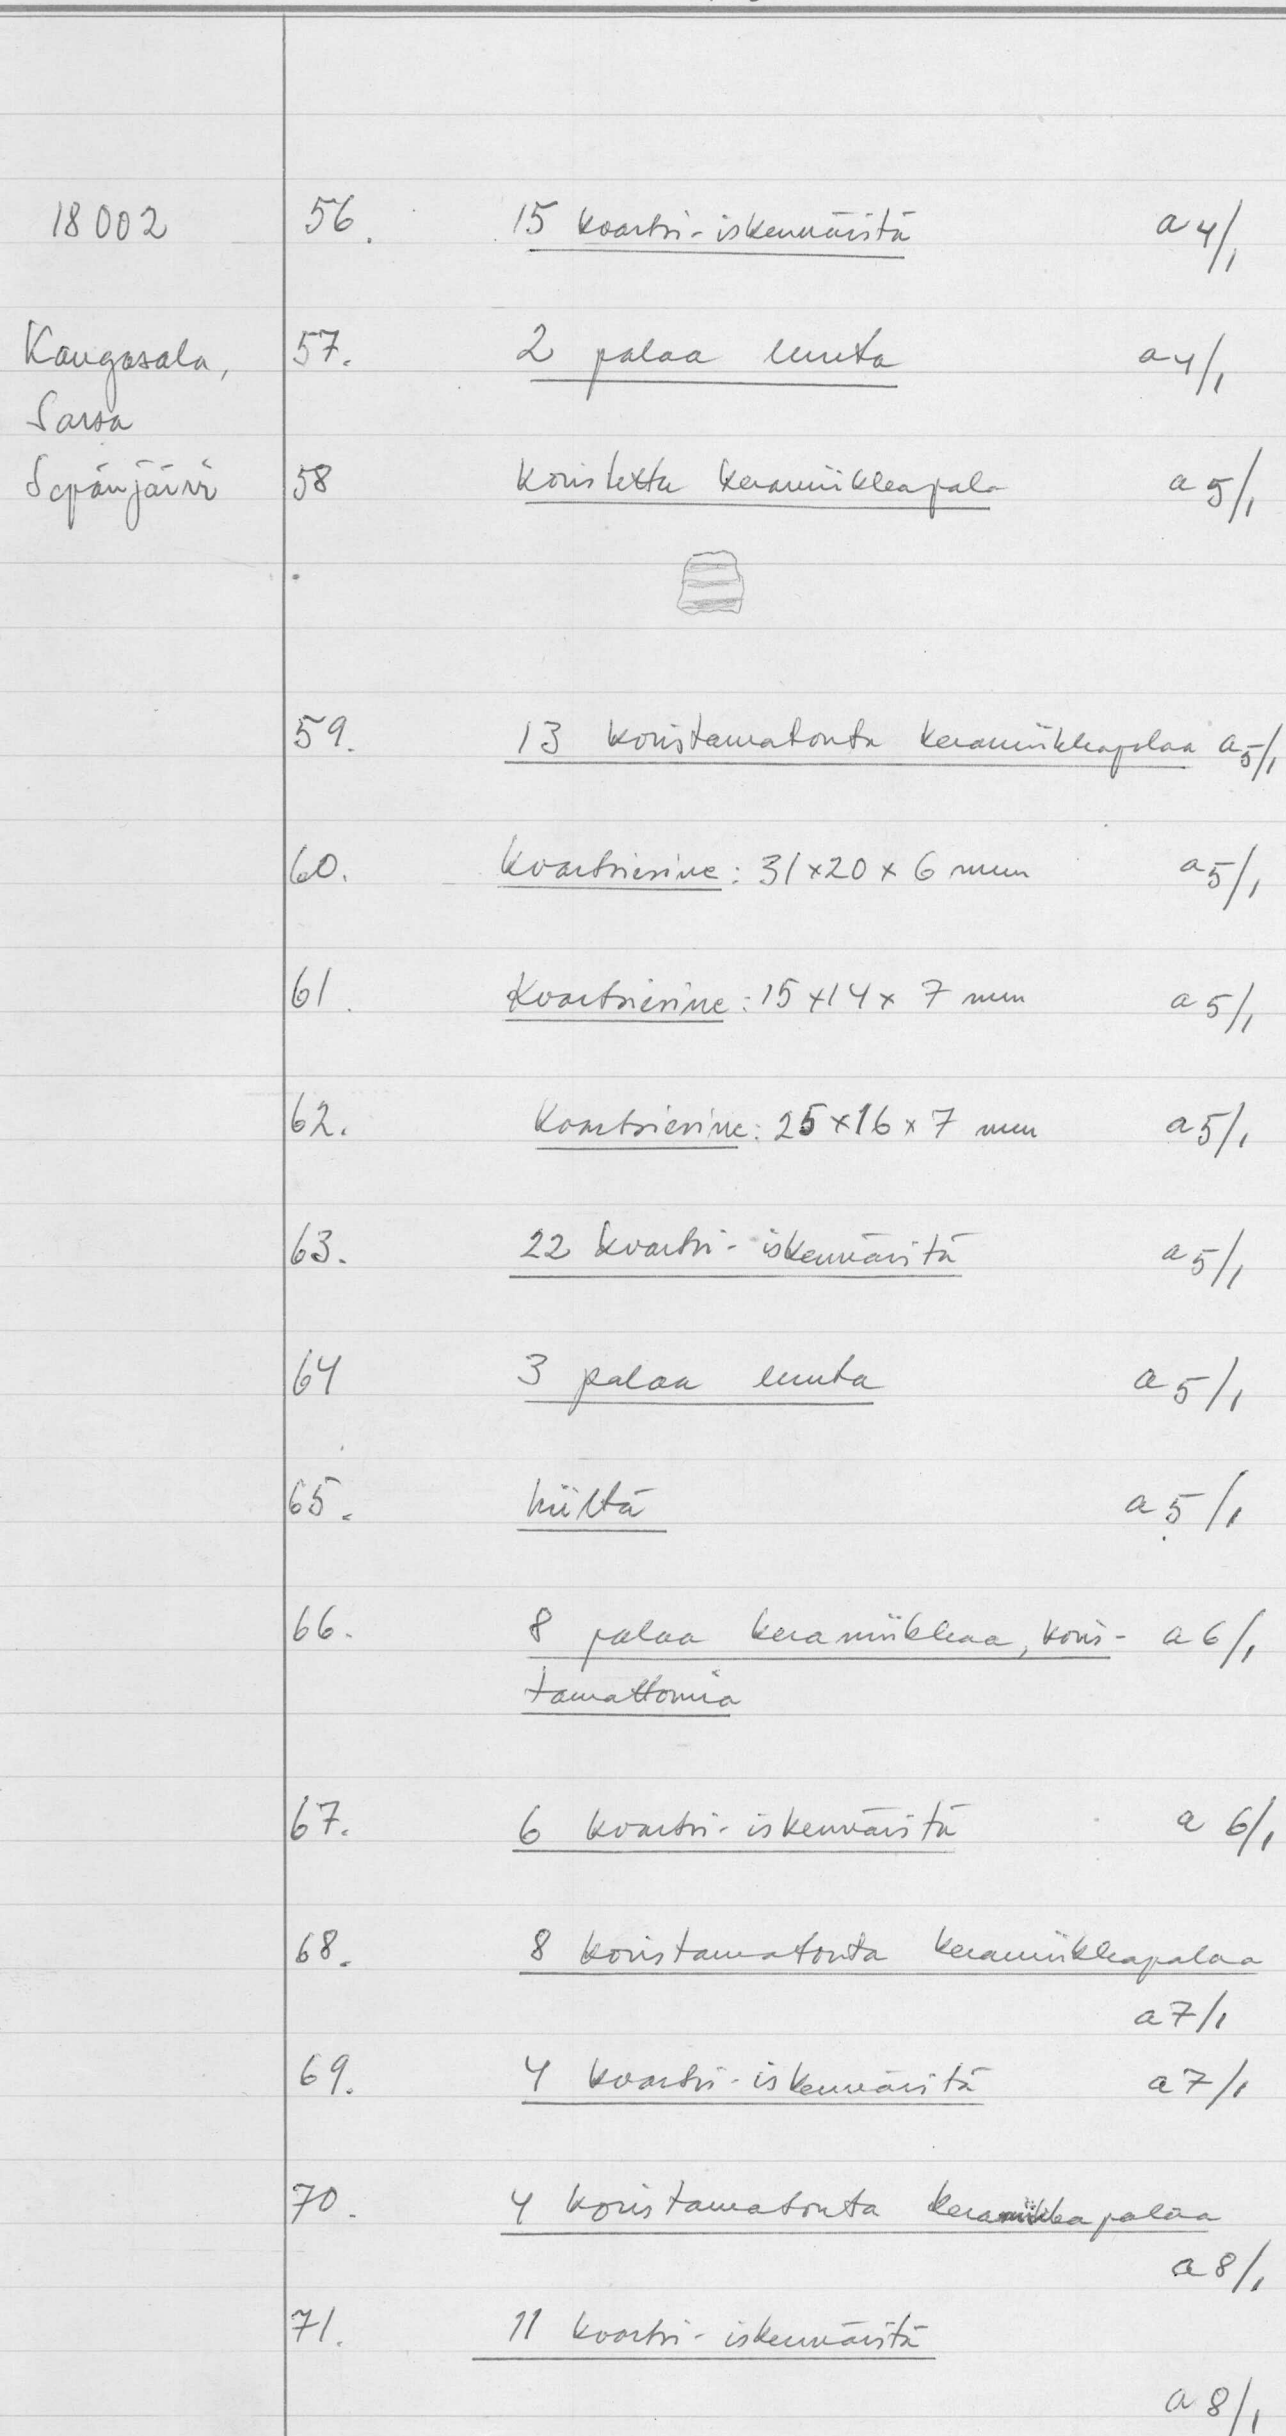 18002 56. 15 kvartsi-iskennäistä a 4/1
Kangasala, 57. 2 palaa luuta a 4/1
Sarsa
Sepänjärvi 58 Koristettu keramiikkapala a 5/1
59. 13 koristamatonta keramiikkapalaa a 5/1
60. Kvartsiesine: 31x20x6 mm a 5/1
61. Kvartsiesine: 15x14x7 mm a 5/1
62. Kvartsiesine: 25x16x7 mm a 5/1
63. 22 kvartsi-iskennäistä a 5/1
64 3 palaa luuta a 5/1
65. hiiltä a 5/1
66. 8 palaa keramiikkaa, koris- a 6/1
tamattomia
67. 6 kvartsi-iskennäistä a 6/1
68. 8 koristamatonta keramiikkapalaa
a 7/1
69. 4 kvartsi-iskennäistä a 7/1
70. 4 koristamatonta keramiikkapalaa
a 8/1
71. 11 kvartsi-iskennäistä
a 8/1